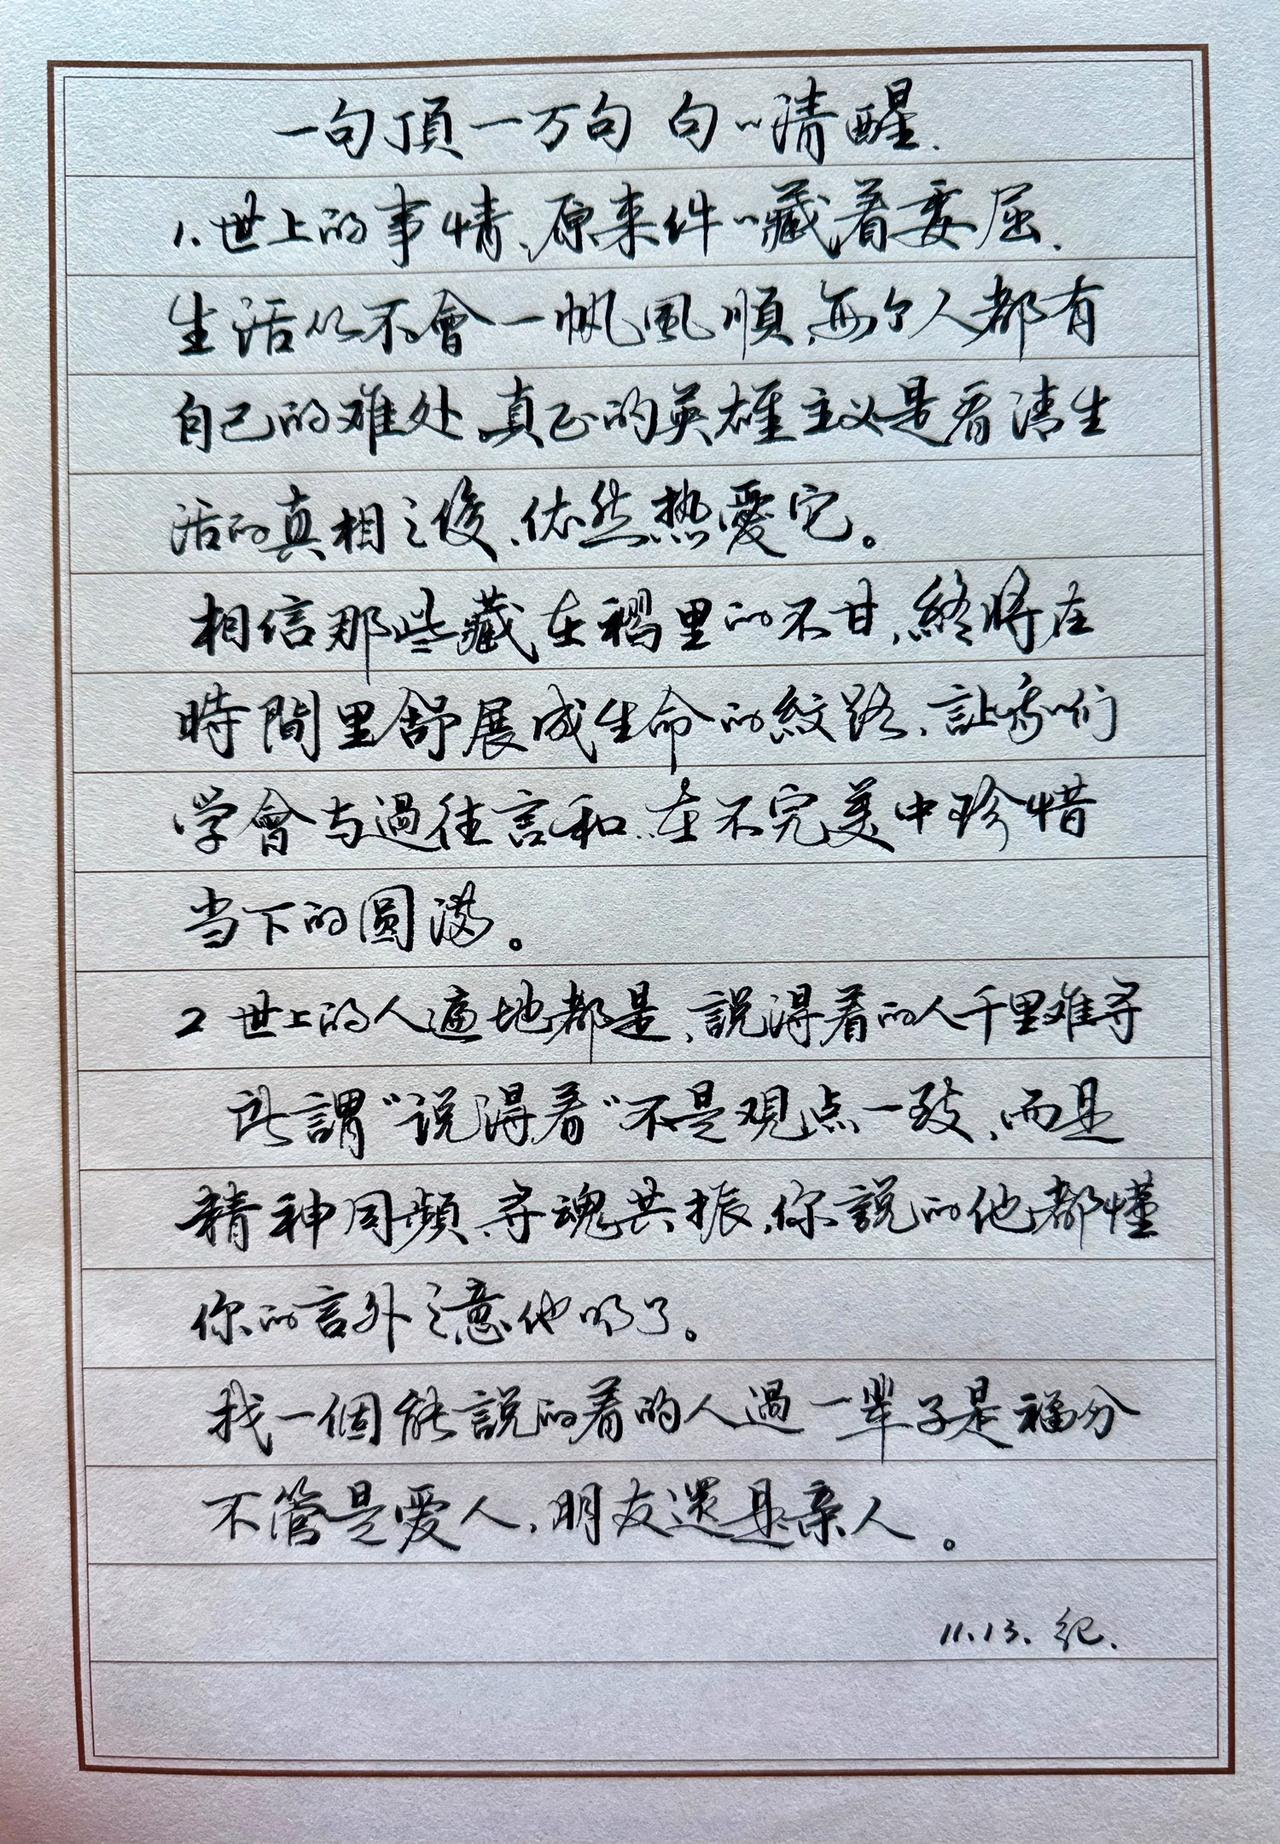 一句頂一万句 句〃清醒.
1.世上的事情、原来件〃藏着委屈.
生活从不會一帆風順,每个人都有
自己的难处,真正的英雄主义是看清生
活的真相之後、依然热愛它。
相信那些藏在褶里的不甘,終將在
時間里舒展成生命的紋路、讓我们
学會与過往言和.在不完美中珍惜
当下的圓满。
2 世上的人遍地都是、說得着的人千里难寻
所謂"说得着"不是观点一致、而是
精神同頻、寻魂共振,你說的他都懂
你的言外之意他明了。
找一個能說的着的人過一辈子是福分
不管是爱人,朋友還是亲人。
11.13. 纪.